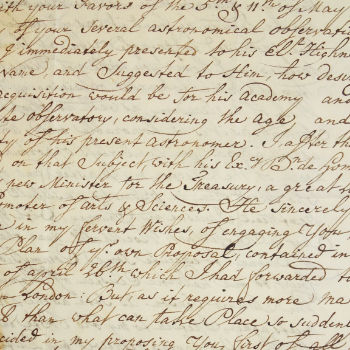 with your Favors of the 5th & 11th of May
of your Several astronomical observati
g immediately presented to his El. Highn
vane, and Suggested to Him, how desi
acquisition would be for his Academy and
te observatory, considering the Age, and
ty of his present astronomer. I, after th
on that Subject with his Exc.y B.n de
new Minister for the Treasury, a great
moter of arts & Sciences. He sincerely
in my fervent Wishes, of engaging You
Plan of yr. own Proposal, contained in
of april 26th which I had forwarded to
London: But, as it requires more ma
& than what can take Place so sudden
cided in my proposing You, first of all